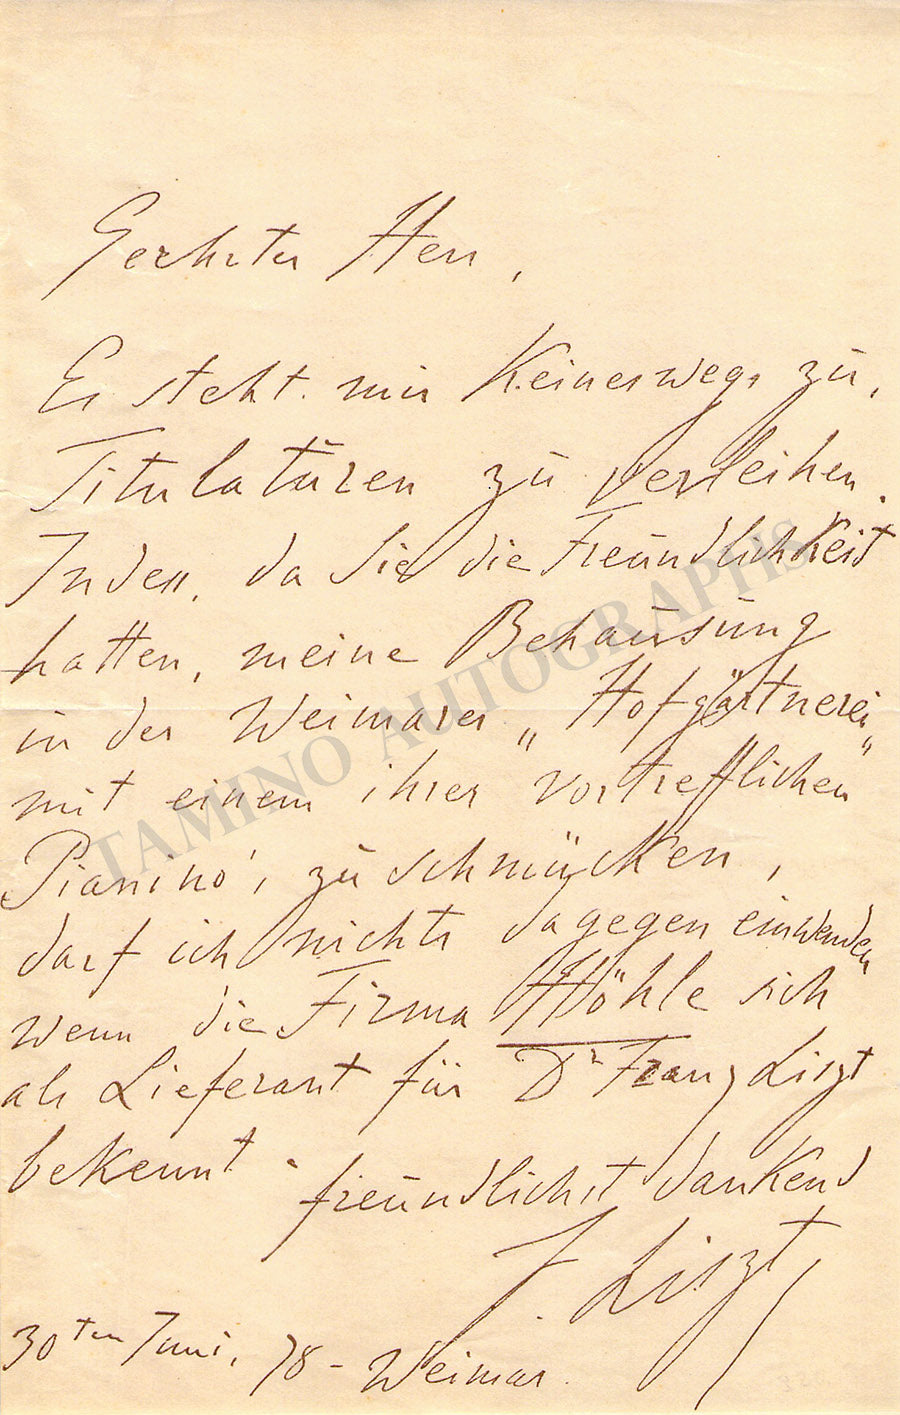 Geehrter Herr,
Es steht mir Keineswegs zu,
Titulaturen zu verleihen.
Indess, da Sie die Freundlichkeit
hatten, meine Behausung
in der Weimarer „Hofgärtnerei"
mit einem ihrer vortrefflichen
Pianino's zu schmücken,
darf ich nichts dagegen einwenden
wenn die Firma Höhle sich
als Lieferant für Dr Franz Liszt
bekennt. freundlichst dankend
F. Liszt
30ten Juni, 78 - Weimar.
TAMINO AUTOGRAPHS